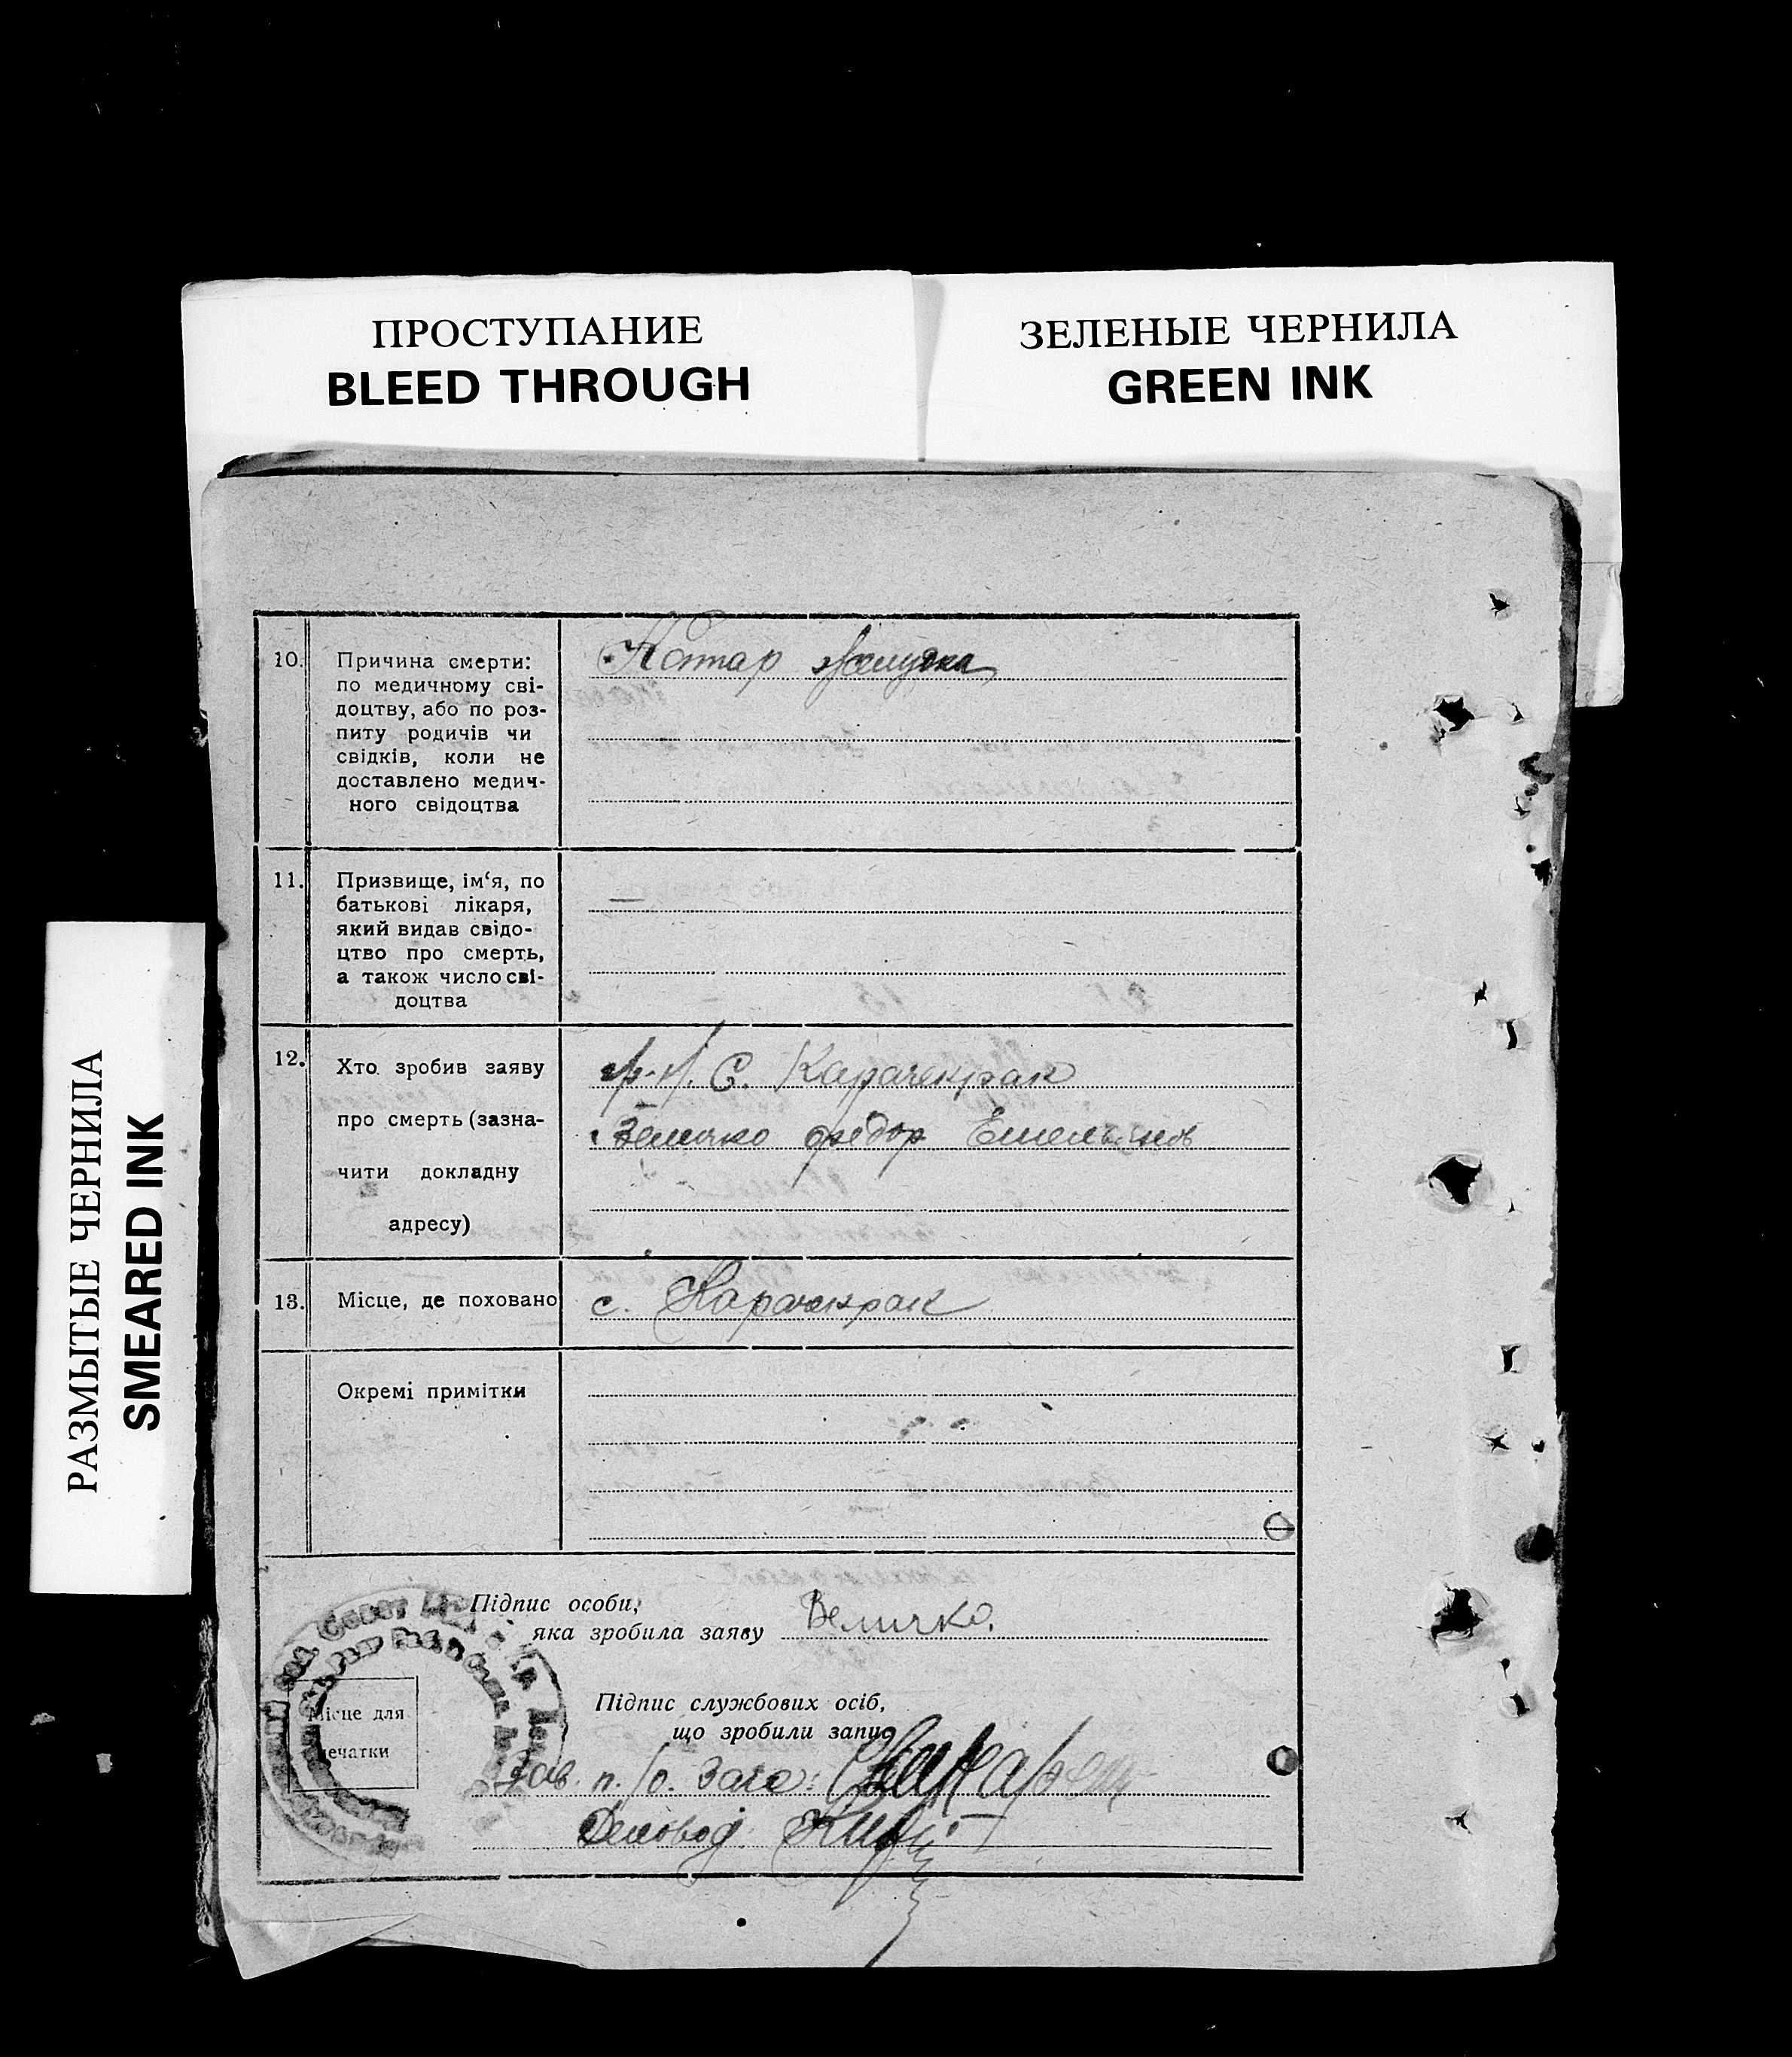 ПРОСТУПАНИЕ
BLEED THROUGH
ЗЕЛЕНЫЕ ЧЕРНИЛА
GREEN INK
РАЗМЫТЫЕ ЧЕРНИЛА
SMEARED INK
10.
Причина смерти:
по медичному сві-
доцтву, або по роз-
питу родичів чи
свідків, коли не
доставлено медич-
ного свідоцтва
Катар желудка
11.
Призвище, ім‘я, по
батькові лікаря,
який видав свідо-
цтво про смерть,
а також число сві-
доцтва
—
12.
Хто зробив заяву
про смерть (зазна-
чити докладну
адресу)
гр-н. С. Карачекрак
Величко Федор Емельянов
13.
Місце, де поховано
с. Карачекрак
Окремі примітки
Підпис особи,
яка зробила заяву Величко.
Місце для
печатки
Підпис службових осіб,
що зробили запис
Зав. п/о. Загс:
Деловод.